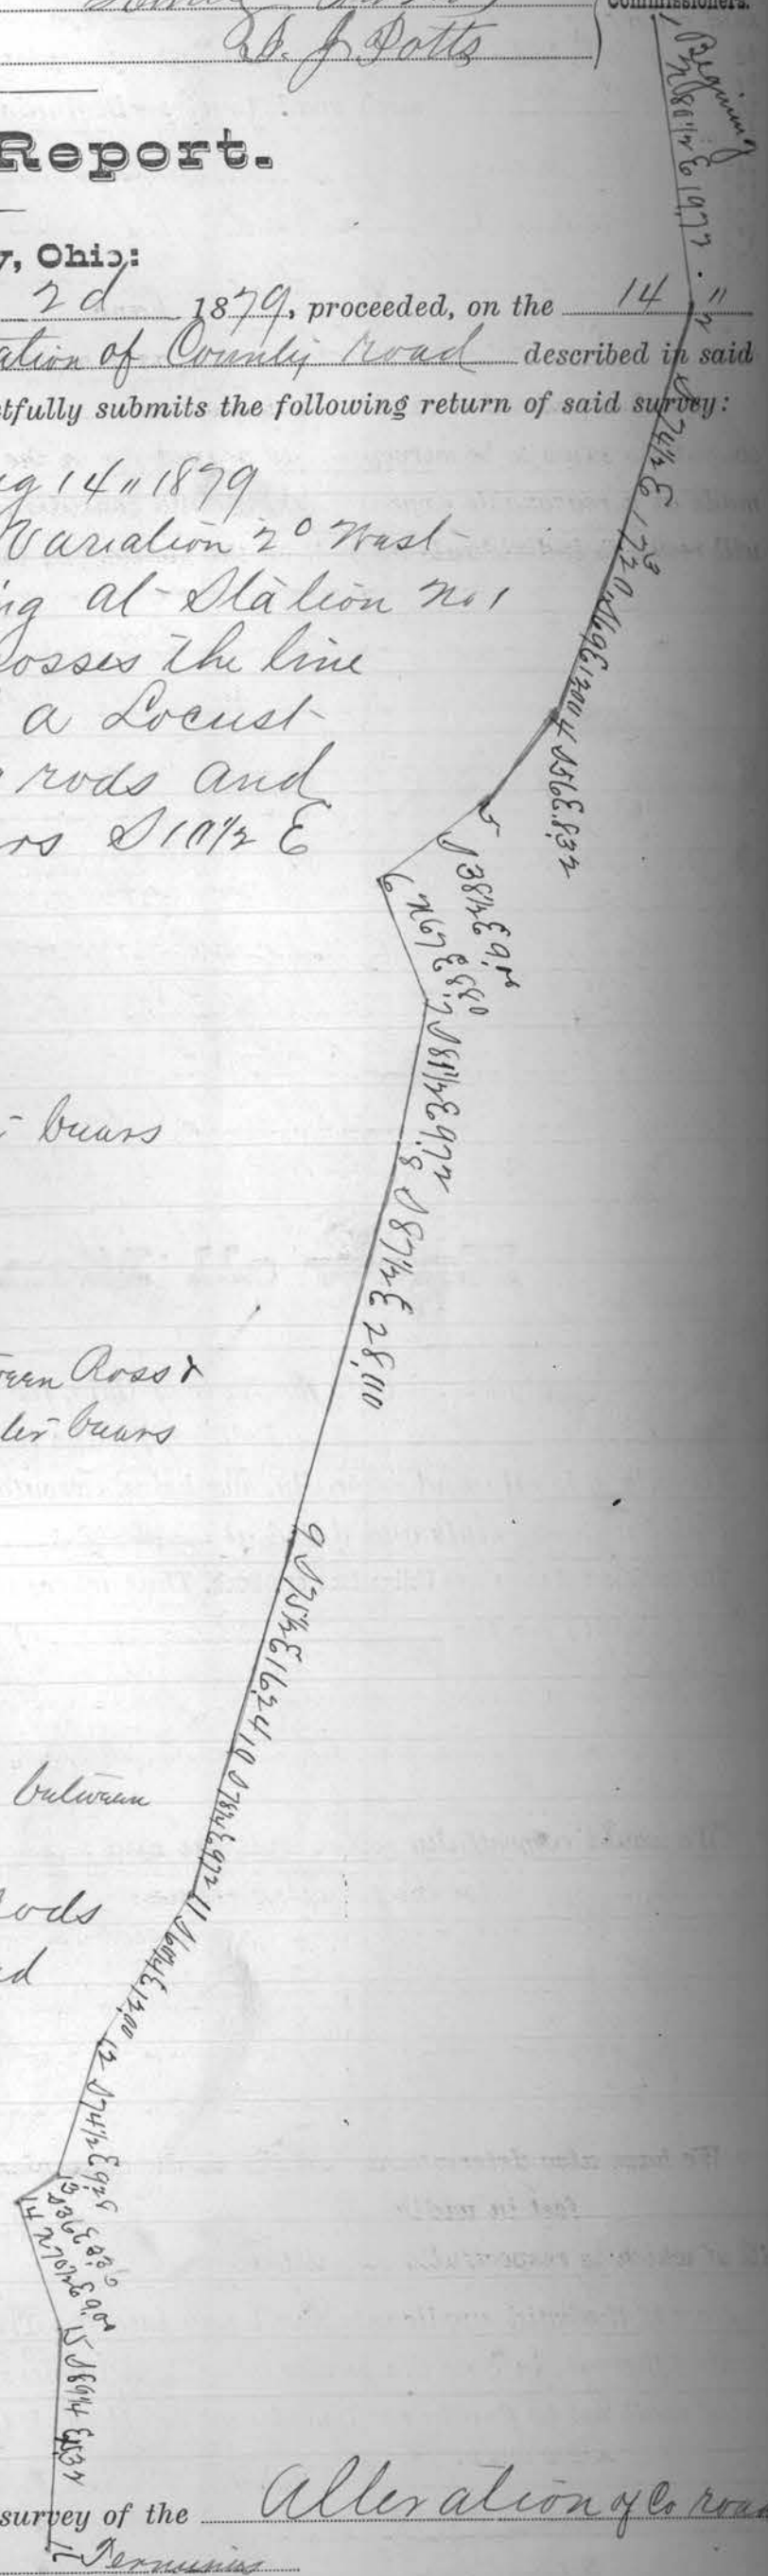 Commissioners.
J. Potts
Report.
y, Ohio:
2d 1879, proceeded, on the 14 "
ation of County road described in said
tfully submits the following return of said survey:
ug 14 " 1879
Variation 2° West
ng at Station No 1
osses the line
a Locust
rods and
rs S 10 1/2 E
bears
ween Ross &
ler bears
between
ods
d
1 Begining
N 80 1/2 E 19,72
2 S 74 1/2 E 17,20
3 S 69 E 13,00
4 S 56 E 8,32
5 S 38 1/2 E 9,
6 N 67 E 8,80
7 S 81 1/2 E 9,72
8 S 87 1/2 E 28,00
9 S 75 1/2 E 16,24
10 S 78 1/2 E 9,72
11 S 60 1/4 E 13,00
12 S 74 1/2 E 9,28
13 S 36 E
14 N 70 1/2 E 9,00
15 S 89 1/4 E
survey of the Alteration of Co road
Terminus